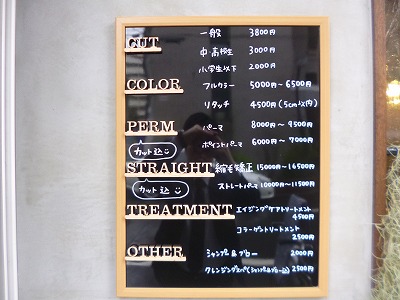 CUT 一般 3800円
中・高校生 3000円
小学生以下 2000円
COLOR フルカラー 5000円～6500円
リタッチ 4500円(5cm以内)
PERM パーマ 8000円～9500円
カット込 ポイントパーマ 6000円～7000円
STRAIGHT 縮毛矯正 15000円～16500円
カット込 ストレートパーマ 10000円～11500円
TREATMENT エイジングケアトリートメント
4500円
コラーゲントリートメント
2500円
OTHER シャンプー&ブロー 2000円
クレンジングスパ(シャンプー&ブロー込) 2500円